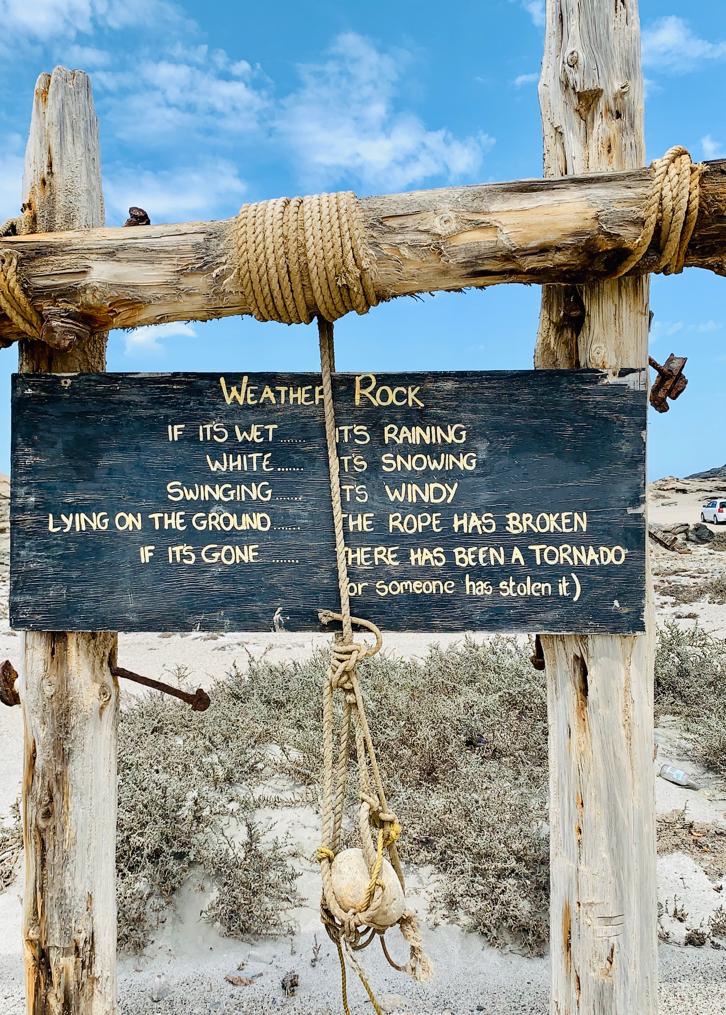 WEATHER ROCK
IF ITS WET ...... IT'S RAINING
WHITE....... IT'S SNOWING
SWINGING...... IT'S WINDY
LYING ON THE GROUND...... THE ROPE HAS BROKEN
IF IT'S GONE ....... THERE HAS BEEN A TORNADO
(or someone has stolen it)